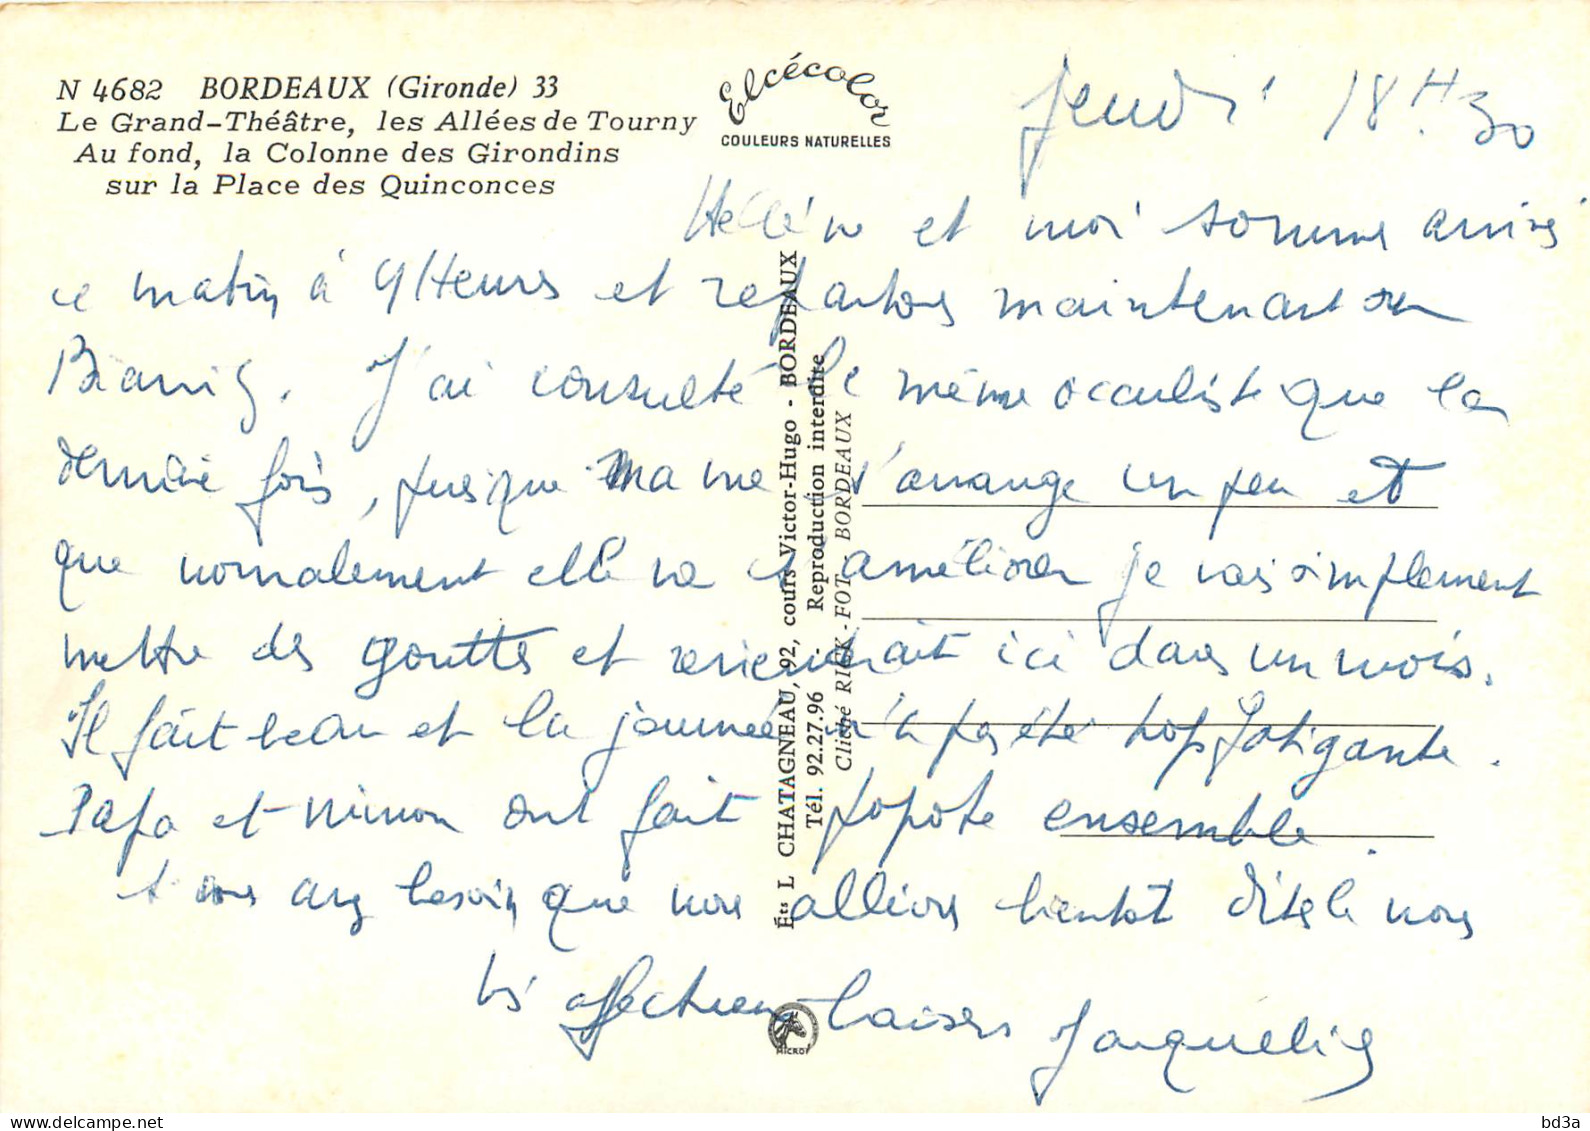 N 4682 BORDEAUX (Gironde) 33
Le Grand-Théâtre, les Allées de Tourny
Au fond, la Colonne des Girondins
sur la Place des Quinconces
Elcécolor
COULEURS NATURELLES
Jeudi 18H.30
et moi somme arrivés
ce matin à 9 Heures et repartons maintenant
J'ai consulté le même occuliste que la
dernière fois, s'arrange un peu et
que normalement elle va s'améliorer je vais simplement
mettre des gouttes et reviendrait ici dans un mois.
Il fait beau et la journée n'a pas été trop fatigante.
Papa et Ninon ont fait popote ensemble.
avez besoin que nous allions bientot dites le nous
affectueux baisers Jacqueline
Éts L CHATAGNEAU, 92, cours Victor-Hugo - BORDEAUX
Tél. 92.27.96 - Reproduction interdite
Cliché RICK-FOT - BORDEAUX
delcampe.net
bd3a